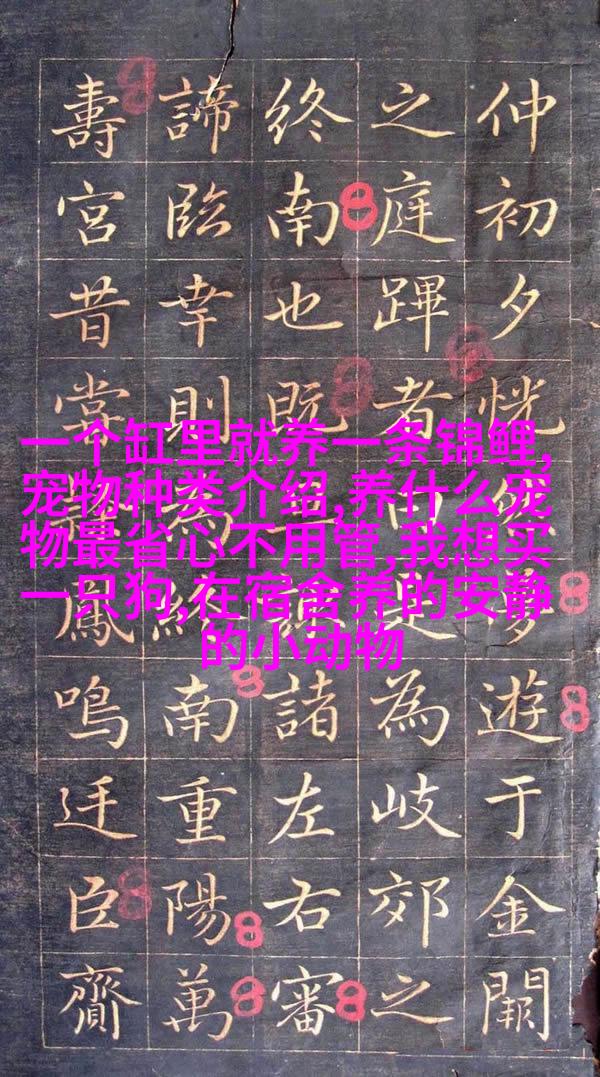 仲初夕恍多遊于金闕
之庭蹕者是為岐郊之
終南也既諸左右審
諦臨幸則為南重陽萬
壽宮昔鳳鳴迋臣齎
一个缸里就养一条锦鲤,
宠物种类介绍,养什么宠
物最省心不用管,我想买
一只狗,在宿舍养的安静
的小动物